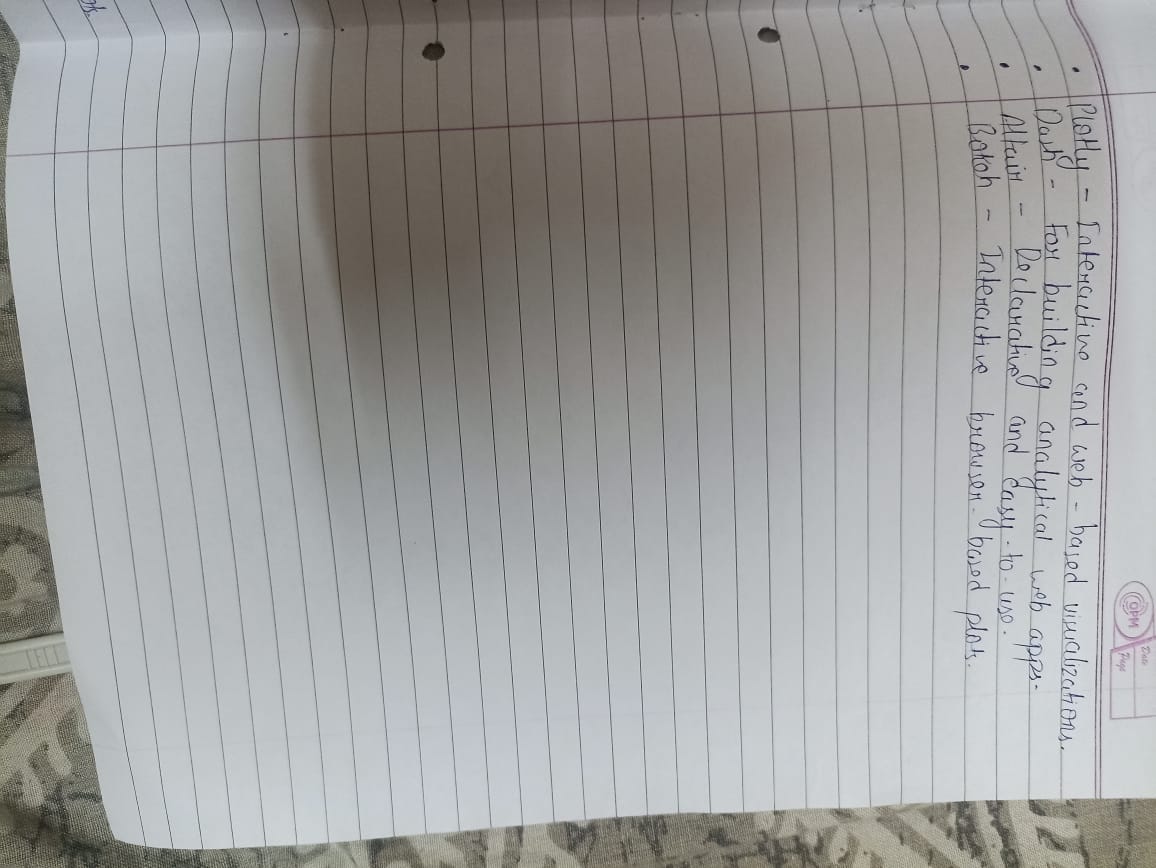 OPM
Date
Page
• Plotly - Interactive and web-based visualizations.
• Dash - For building analytical web apps.
• Altair - Declarative and easy-to-use.
• Bokeh - Interactive browser-based plots.